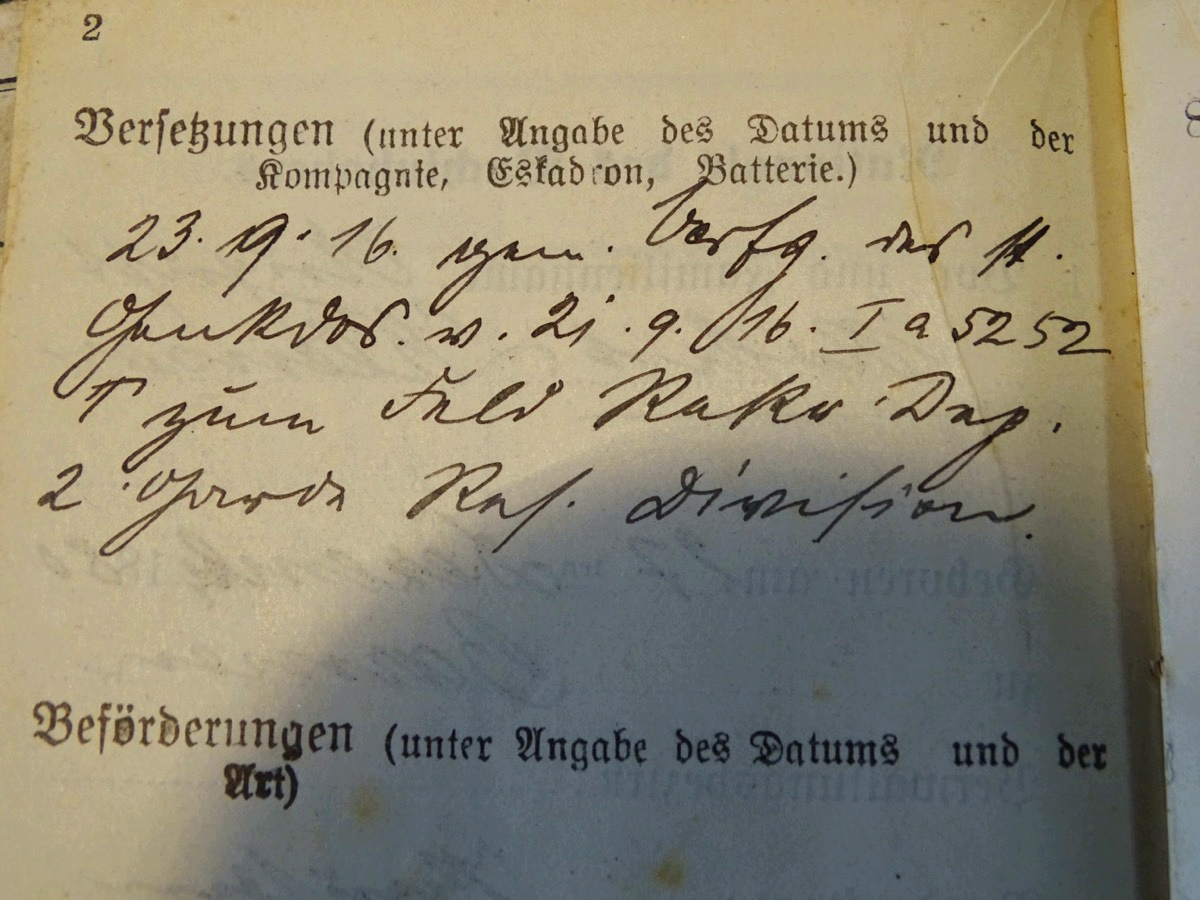 2
Versetzungen (unter Angabe des Datums und der
Kompagnie, Eskadron, Batterie.)
23. 9. 16. gem. Verfg. des st.
Genkdos. v. 21. 9. 16. I a 5252
zum Feld Rekr Dep.
2 Garde Res. Division.
Beförderungen (unter Angabe des Datums und der
Art)